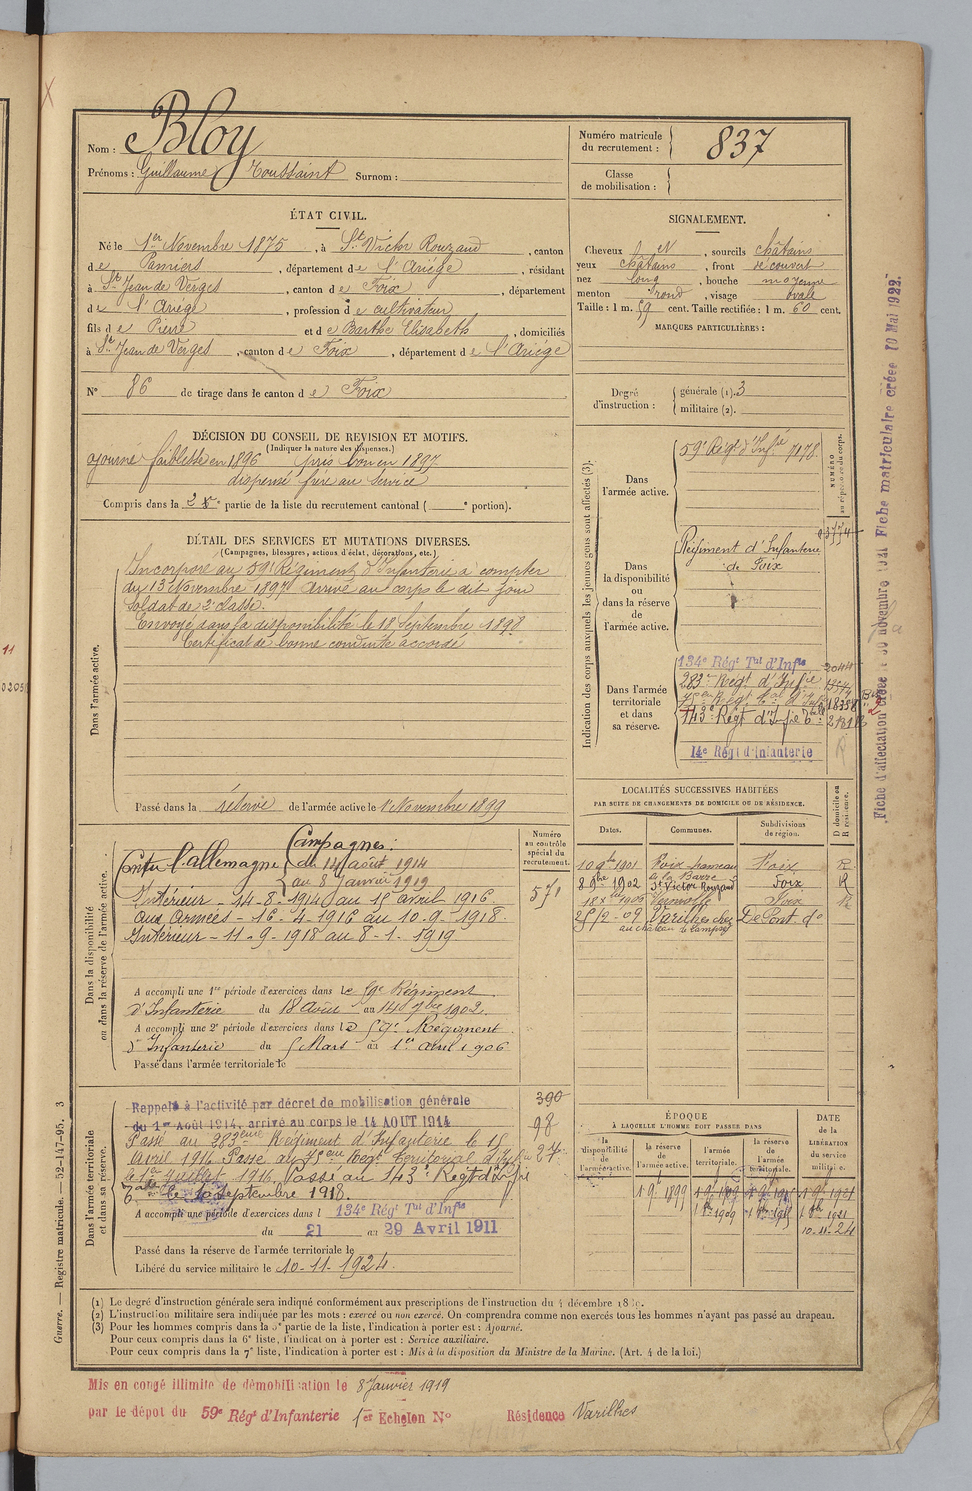 Nom : Bloy
Prénoms : Guillaume Toussaint Surnom :
Numéro matricule du recrutement : 837
Classe de mobilisation :
ÉTAT CIVIL.
Né le 1er Novembre 1875, à St Victor Rouzaud, canton
de Pamiers, département de l'Ariège, résidant
à St Jean de Verges, canton de Foix, département
de l'Ariège, profession de cultivateur
fils de Pierre et de Barthe Elisabeth, domiciliés
à St Jean de Verges, canton de Foix, département de l'Ariège
N° 86 de tirage dans le canton de Foix
SIGNALEMENT.
Cheveux, sourcils châtains
yeux châtains, front découvert
nez long, bouche moyenne
menton rond, visage ovale
Taille : 1 m. 59 cent. Taille rectifiée : 1 m. 60 cent.
MARQUES PARTICULIÈRES :
Degré d'instruction : générale (1). 3
militaire (2).
DÉCISION DU CONSEIL DE REVISION ET MOTIFS.
(Indiquer la nature des dispenses.)
ajourné faiblesse en 1896 pris bon en 1897
dispensé frère au service
Compris dans la 2e partie de la liste du recrutement cantonal ( e portion).
DÉTAIL DES SERVICES ET MUTATIONS DIVERSES.
(Campagnes, blessures, actions d'éclat, décorations, etc.)
Dans l'armée active.
Incorporé au 59e Régiment d'Infanterie à compter
du 13 Novembre 1897 arrivé au corps le dit jour
Soldat de 2e classe.
Envoyé dans la disponibilité le 18 Septembre 1898
Certificat de bonne conduite accordé
Passé dans la réserve de l'armée active le 1er Novembre 1899
Indication des corps auxquels les jeunes gens sont affectés (3).
NUMÉRO au répertoire du corps.
Dans l'armée active.
59e Régt d'Infie 7178
Dans la disponibilité ou dans la réserve de l'armée active.
Régiment d'Infanterie
de Foix
Dans l'armée territoriale et dans sa réserve.
134e Régt Tal d'Infie 2044
283e Régt d'Infie
143e Régt d'Infie
14e Régt d'Infanterie
Fiche d'affectation créée le 30 novembre 1921 Fiche matriculaire créée 10 Mai 1922.
LOCALITÉS SUCCESSIVES HABITÉES
PAR SUITE DE CHANGEMENTS DE DOMICILE OU DE RÉSIDENCE.
Dates. Communes. Subdivisions de région. D domicile ou R résidence.
10 9bre 1901 Foix Foix R
8 9bre 1902 St Victor Rouzaud Foix R
Foix R
25/2-07 Varilhes chez
au château
Dans la disponibilité ou dans la réserve de l'armée active.
Numéro au contrôle spécial du recrutement.
571
Campagnes :
Contre l'allemagne du 14 août 1914
au 8 Janvier 1919
Intérieur - 14-8-1914 au 15 avril 1916.
aux Armées - 16-4-1916 au 10-9-1918.
Intérieur - 11-9-1918 au 8-1-1919
A accompli une 1re période d'exercices dans le 59e Régiment
d'Infanterie du 18 Août au 14 7bre 1902.
A accompli une 2e période d'exercices dans le 59e Régiment
d'Infanterie du 5 Mars au 1er avril 1906
Passé dans l'armée territoriale le
Dans l'armée territoriale et dans sa réserve.
390
98
27
Rappelé à l'activité par décret de mobilisation générale
du 1er Août 1914, arrivé au corps le 14 AOUT 1914
Passé au 283eme Régiment d'Infanterie le 15
Avril 1916 Passé au 75eme Régt Territorial d'Infie
le 1er Juillet 1916, Passé au 143e Régt d'Infie
le 10 Septembre 1918.
A accompli une période d'exercices dans l 134e Régt Tal d'Infie
du 21 au 29 Avril 1911
Passé dans la réserve de l'armée territoriale le
Libéré du service militaire le 10-11-1924.
ÉPOQUE
À LAQUELLE L'HOMME DOIT PASSER DANS
la disponibilité de l'armée active.
la réserve de l'armée active.
l'armée territoriale.
la réserve de l'armée territoriale.
DATE de la LIBÉRATION du service militaire.
1 9bre 1899
10-11-24
(1) Le degré d'instruction générale sera indiqué conformément aux prescriptions de l'instruction du 4 décembre
(2) L'instruction militaire sera indiquée par les mots : exercé ou non exercé. On comprendra comme non exercés tous les hommes n'ayant pas passé au drapeau.
(3) Pour les hommes compris dans la 5e partie de la liste, l'indication à porter est : Ajourné.
Pour ceux compris dans la 6e liste, l'indication à porter est : Service auxiliaire.
Pour ceux compris dans la 7e liste, l'indication à porter est : Mis à la disposition du Ministre de la Marine. (Art. 4 de la loi.)
Guerre. — Registre matricule. — 52-147-95. 3
Mis en congé illimité de démobilisation le 8 Janvier 1919
par le dépôt du 59e Régt d'Infanterie 1er Echelon N° Résidence Varilhes